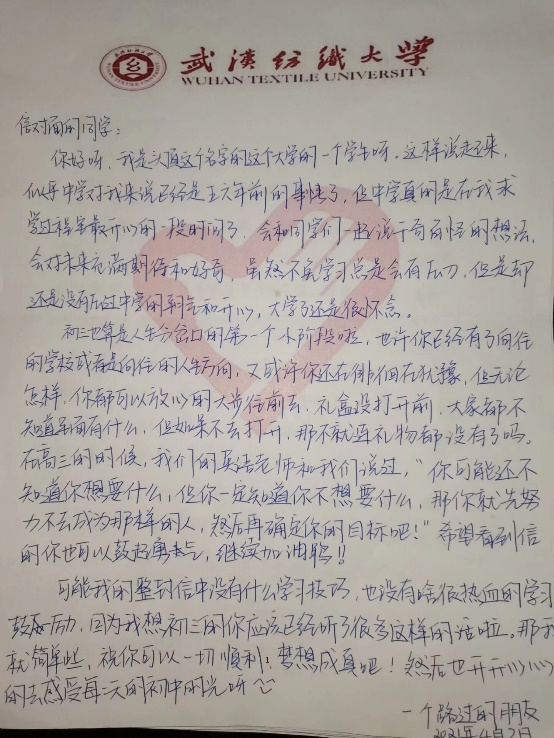 武漢纺織大學
WUHAN TEXTILE UNIVERSITY
信对面的同学：
你好呀，我是头顶这个名字的这个大学的一个学生呀。这样说起来，
似乎中学对我来说已经是五六年前的事情了，但中学真的是在我求
学过程里最开心的一段时间了，会和同学们一起说千奇百怪的想法，
会对未来充满期待和好奇，虽然不免学习总是会有压力，但是却
还是没有压过中学的朝气和开心，大学了还是很怀念。
初三也算是人生分岔口的第一个小阶段啦，也许你已经有了向往
的学校或者是向往的人生方向，又或许你还在徘徊在犹豫，但无论
怎样，你都可以放心的大步往前去，礼盒没打开前，大家都不
知道里面有什么，但如果不去打开，那不就连礼物都没有了吗。
在高三的时候，我们的英语老师和我们说过，“你可能还不
知道你想要什么，但你一定知道你不想要什么，那你就先努
力不去成为那样的人，然后再确定你的目标吧！”希望看到信
的你也可以鼓起勇气，继续加油鸭！！
可能我的整封信中没有什么学习技巧，也没有啥很热血的学习
鼓励，因为我想初三的你应该已经听了很多这样的话啦。那我
就简单些，祝你可以一切顺利！梦想成真吧！然后也开开心心
的去感受每一天的初中时光呀
一个路过的朋友
2021年4月2日